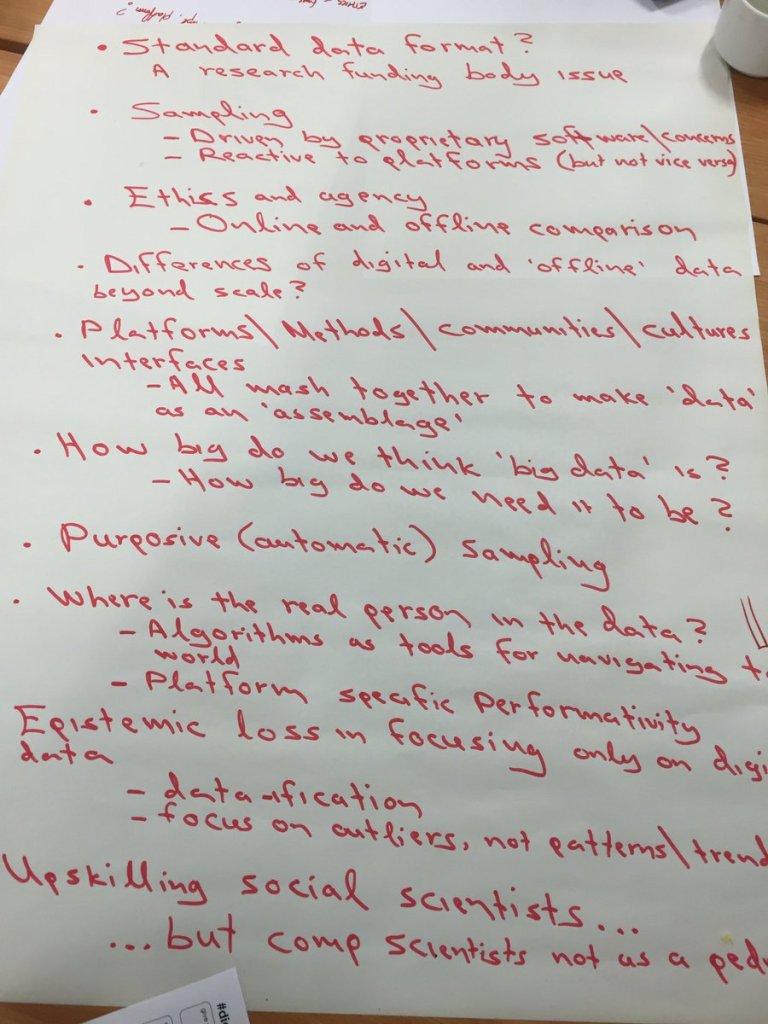 • Standard data format?
A research funding body issue
• Sampling
- Driven by proprietary software\concerns
- Reactive to platforms (but not vice versa)
• Ethics and agency
- Online and offline comparison
• Differences of digital and 'offline' data
beyond scale?
• Platforms\Methods\communities\cultures
interfaces
- All mash together to make 'data'
as an 'assemblage'
• How big do we think 'big data' is?
- How big do we need it to be?
• Purposive (automatic) sampling
• Where is the real person in the data?
- Algorithms as tools for navigating
world
- Platform specific performativity
Epistemic loss in focusing only on digi
data
- data-ification
- focus on outliers, not patterns\trend
Upskilling social scientists...
...but comp scientists not as a ped
#di
give